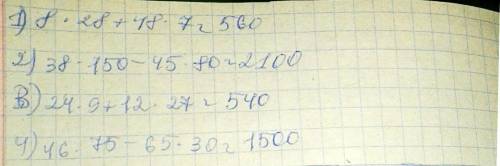 1) 8 · 28 + 48 · 7 = 560
2) 38 · 150 - 45 · 80 = 2100
В) 24 · 9 + 12 · 27 = 540
4) 46 · 75 - 65 · 30 = 1500